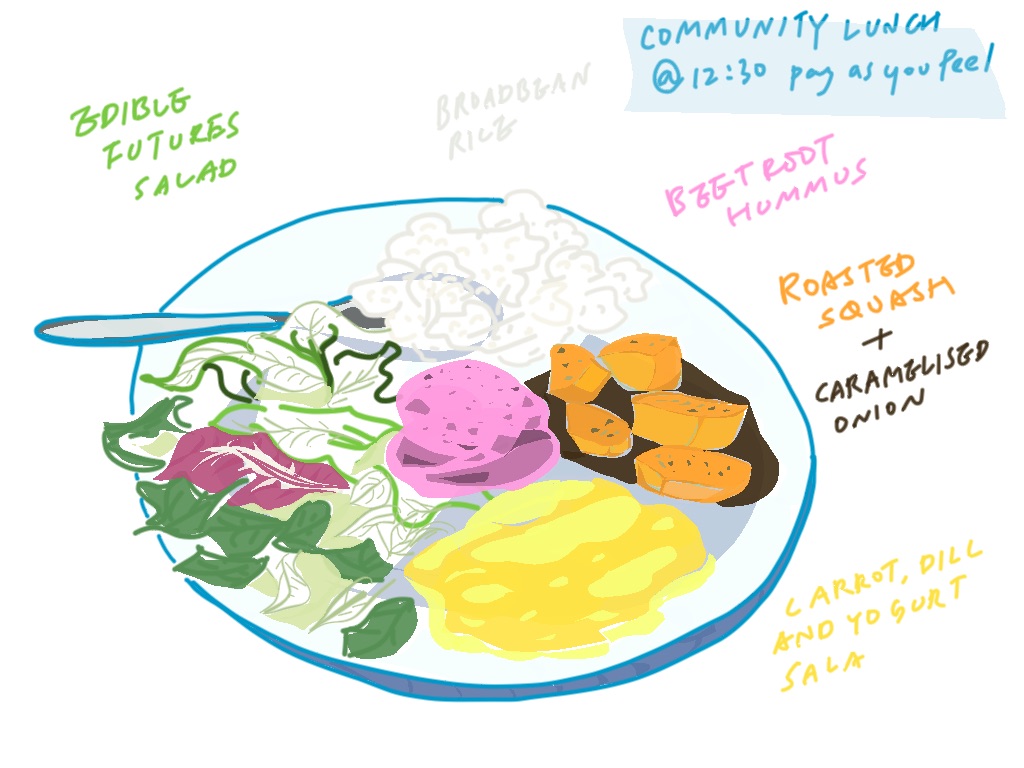 COMMUNITY LUNCH
@ 12:30 pay as you feel
EDIBLE
FUTURES
SALAD
BROADBEAN
RICE
BEETROOT
HUMMUS
ROASTED
SQUASH
+
CARAMELISED
ONION
CARROT, DILL
AND YOGURT
SALA